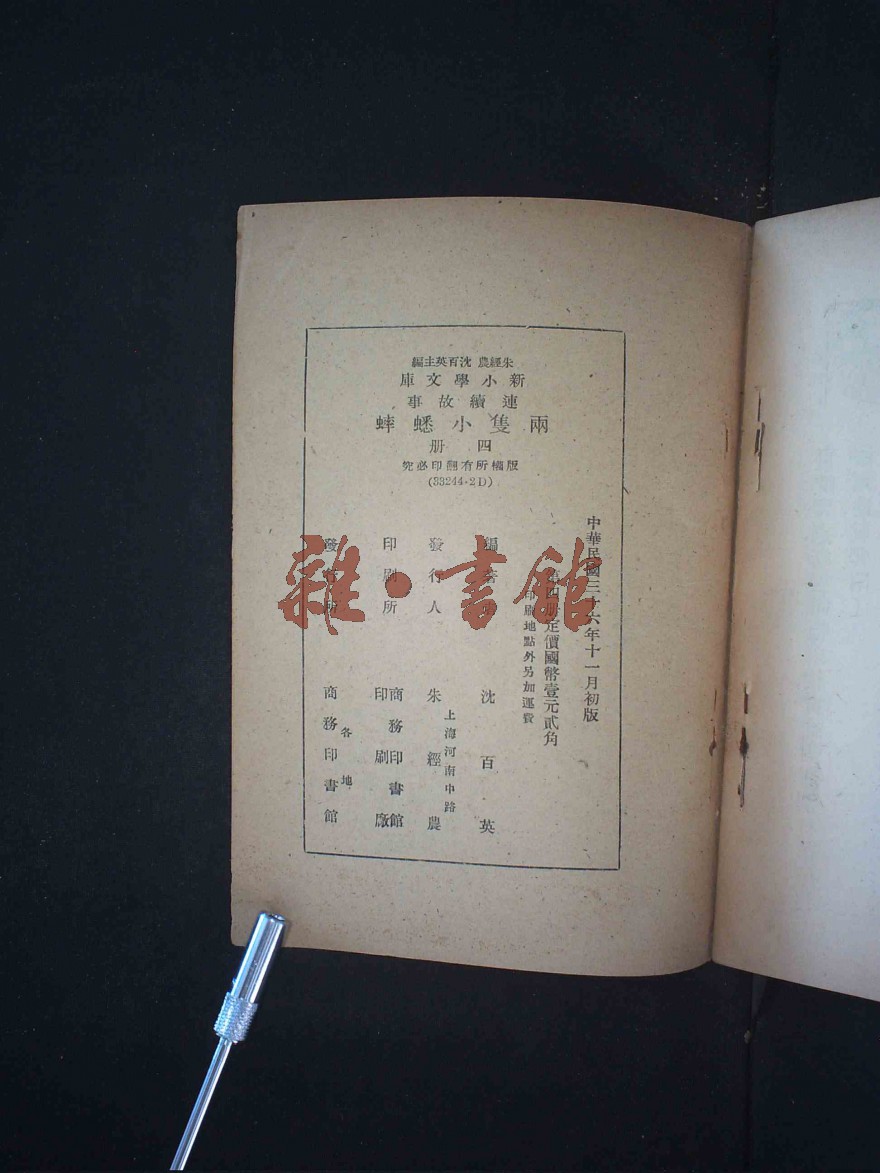 朱經農 沈百英主編
新小學文庫
連續故事
兩隻小蟋蟀
四册
版權所有翻印必究
(33244·2D)
中華民國三十六年十一月初版
第四册定價國幣壹元貳角
印刷地點外另加運費
編著者 沈百英
發行人 朱經農
上海河南中路
印刷所 商務印書館
印刷廠
發行所 商務印書館
各地
雜·書館